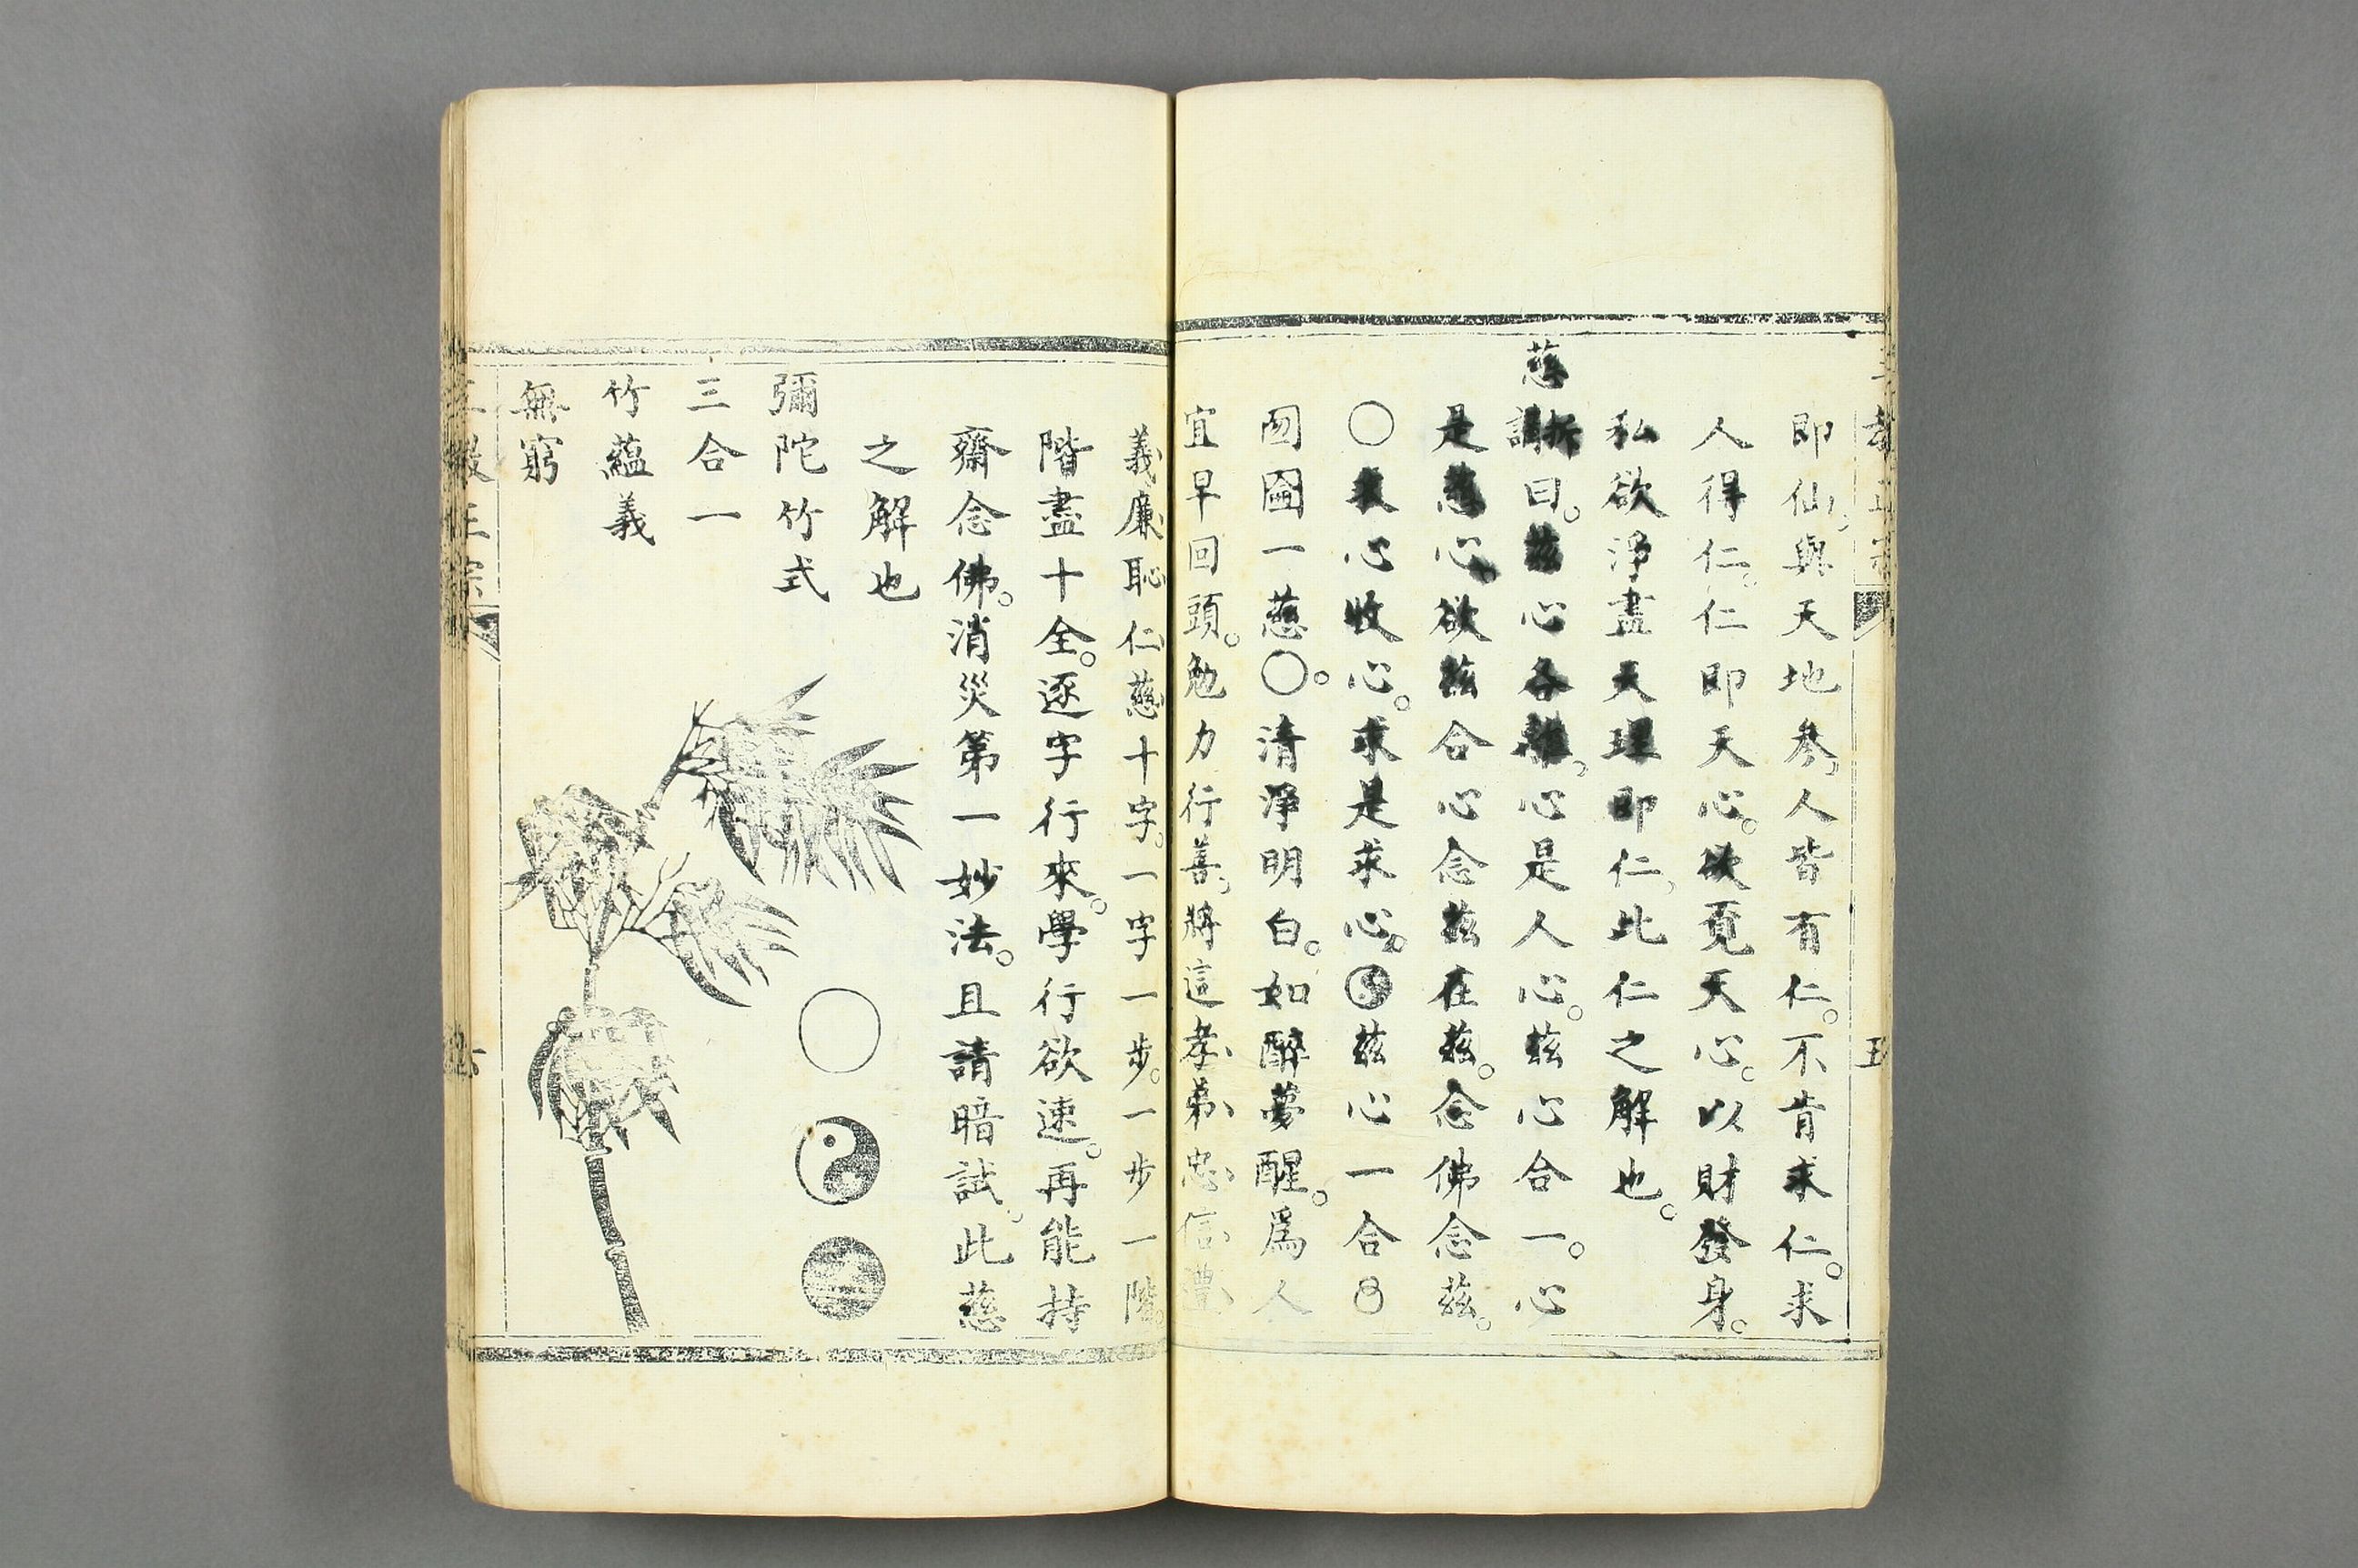 三教正宗 五
即仙、與天地參、人皆有仁。不肯求仁。求
人得仁。仁即天心。欲覓天心。以財發身。
私欲淨盡天理即仁、此仁之解也。
慈 拆講曰。茲心各離、心是人心。茲心合一。心
是慈心、欲茲合心念茲在茲。念佛念茲。
○ 心收心。求是求心。☯茲心一合8
囫圇一慈○。清淨明白。如醉夢醒。為人
宜早回頭。勉力行善、將這孝、弟、忠、信、禮、
義、廉、恥、仁、慈十字。一字一步。一步一階。
階盡十全。逐字行來。學行欲速。再能持
齋念佛。消災第一妙法。且請暗試、此慈
之解也
彌陀竹式
三合一
竹蘊義
無窮